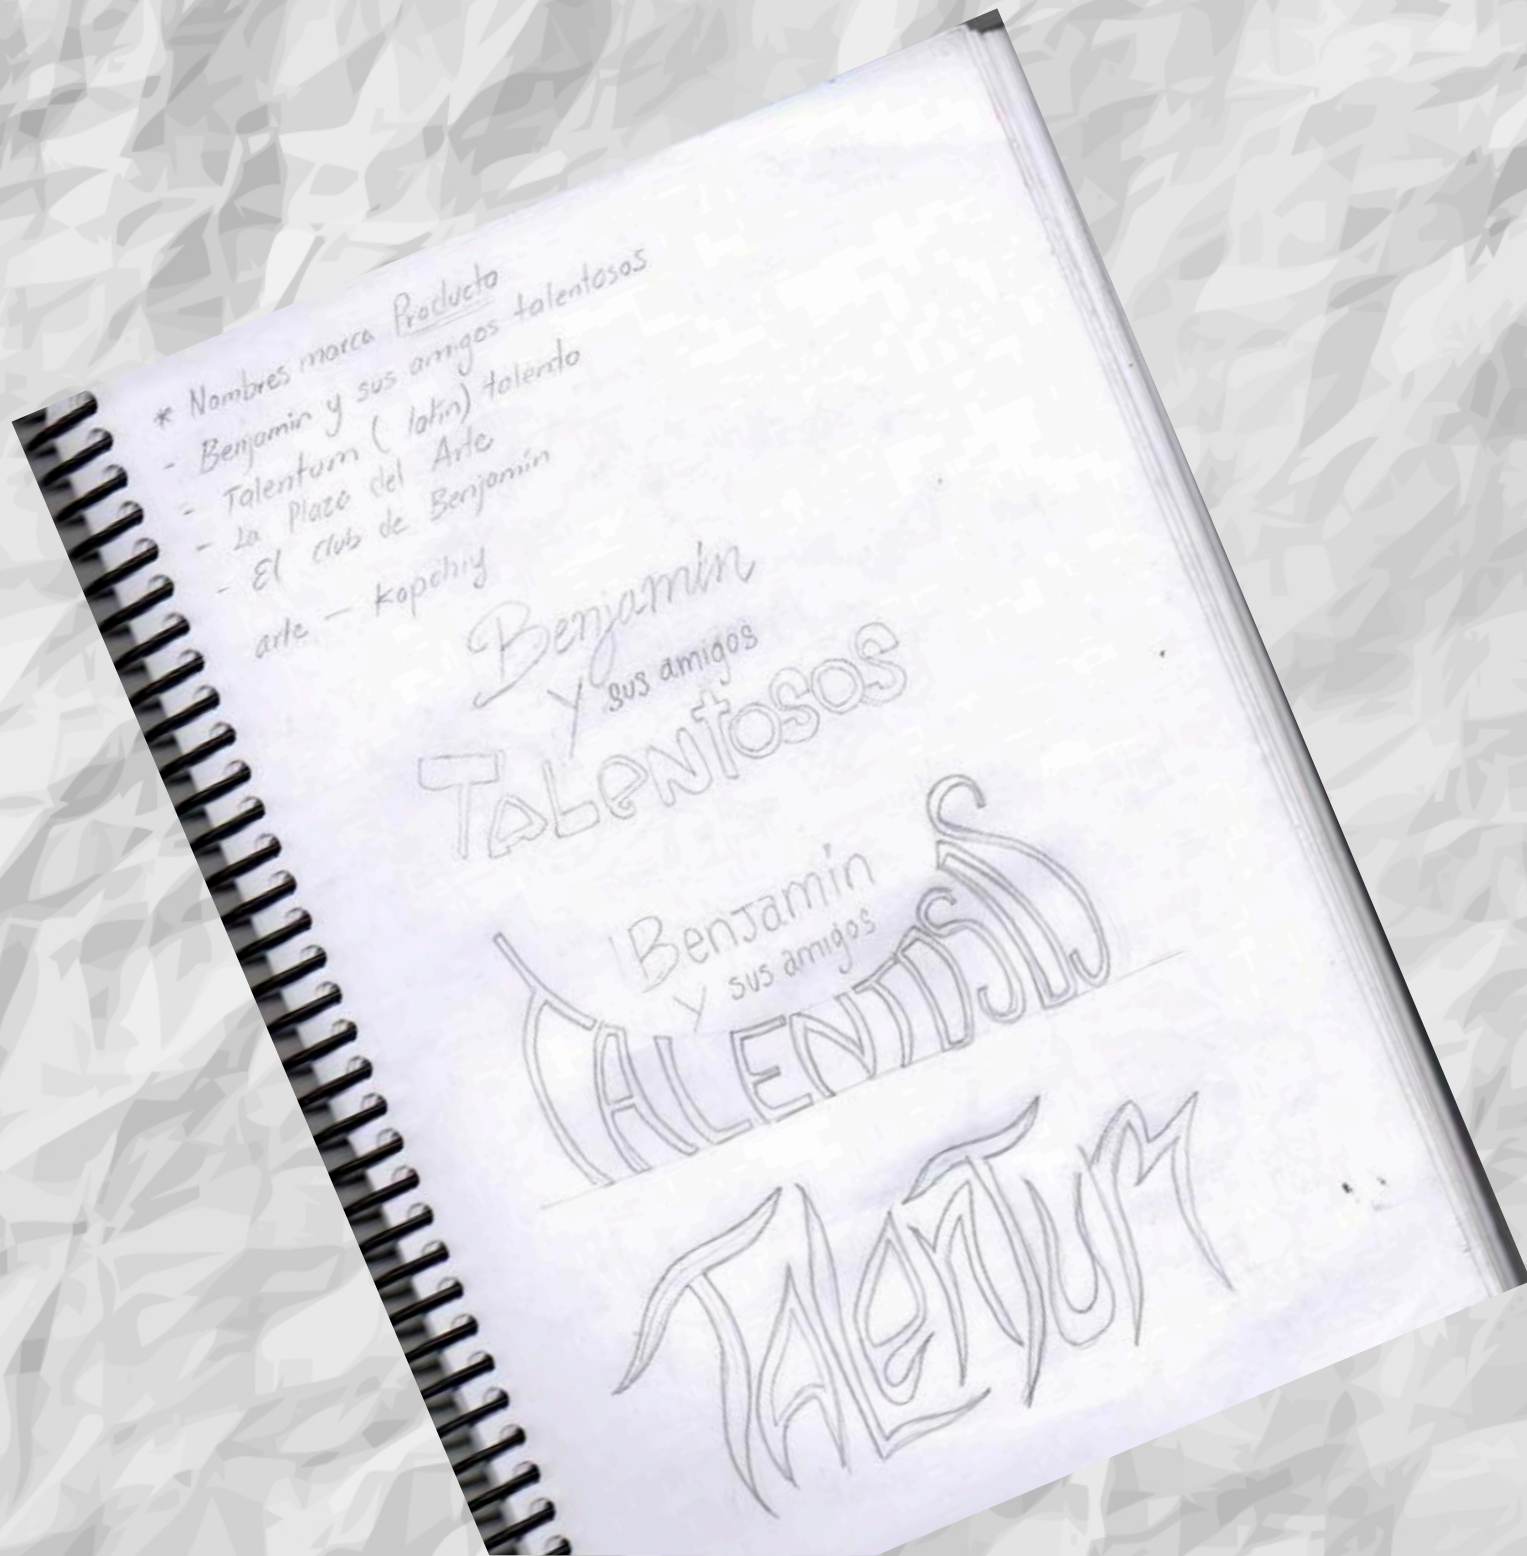 * Nombres marca Producto
- Benjamin y sus amigos talentosos
- Talentum (latín) talento
- La Plaza del Arte
- El Club de Benjamín
arte — Kapchiy
Benjamín
y sus amigos
TaLeNtosos
Benjamín
y sus amigos
TALENTOSOS
TALeNTUM